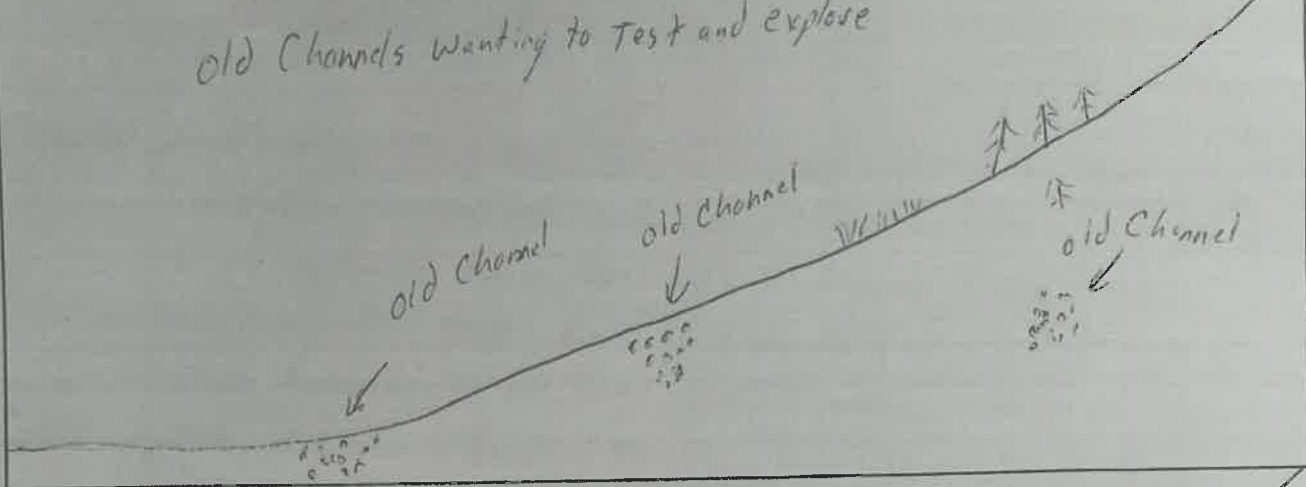 old Channels wanting to Test and explore
old Channel
old Channel
old Channel